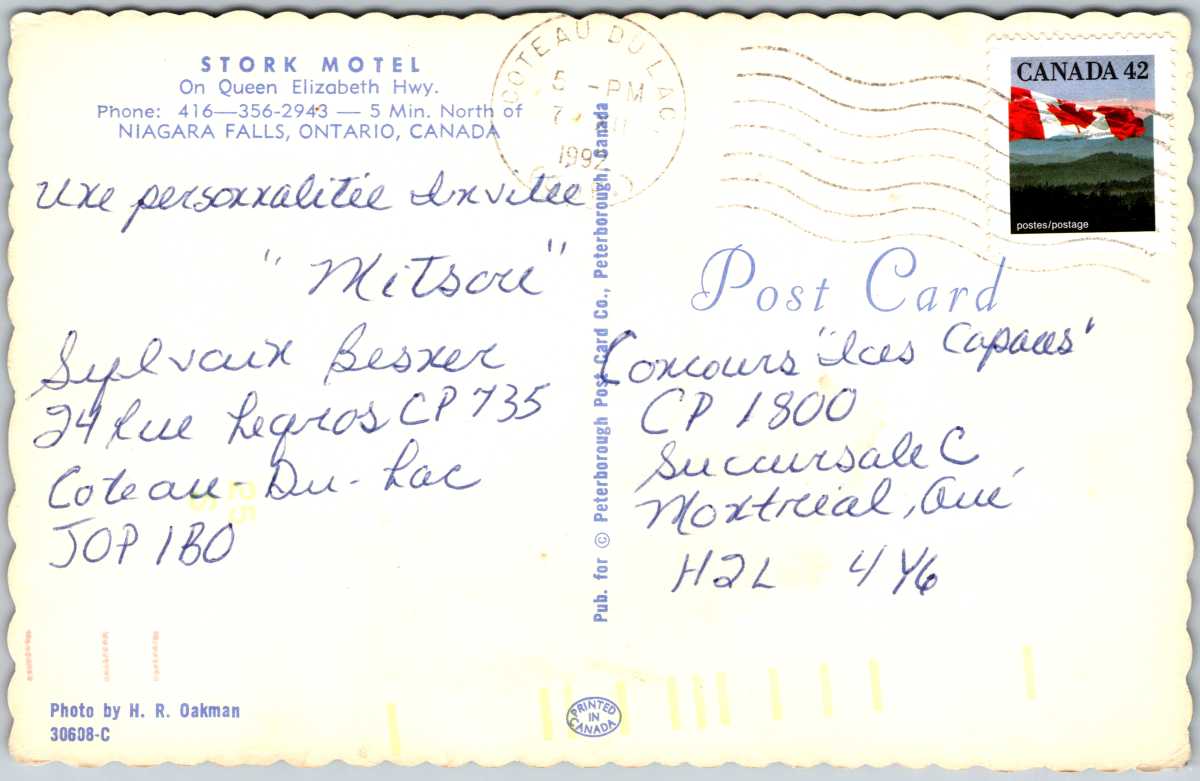 STORK MOTEL
On Queen Elizabeth Hwy.
Phone: 416—356-2943 — 5 Min. North of
NIAGARA FALLS, ONTARIO, CANADA
Une personnalitée Invitée
"Mitsou"
Sylvain Besner
24 Rue Legros CP 735
Coteau-Du-Lac
JOP 1BO
Photo by H. R. Oakman
30608-C
Pub. for © Peterborough Post Card Co., Peterborough, Canada
PRINTED
IN
CANADA
COTEAU DU LAC
5 -PM
7
1992
CANADA 42
postes/postage
Post Card
Concours "Capaces"
CP 1800
Succursale C
Montréal, Qué
H2L 4Y6